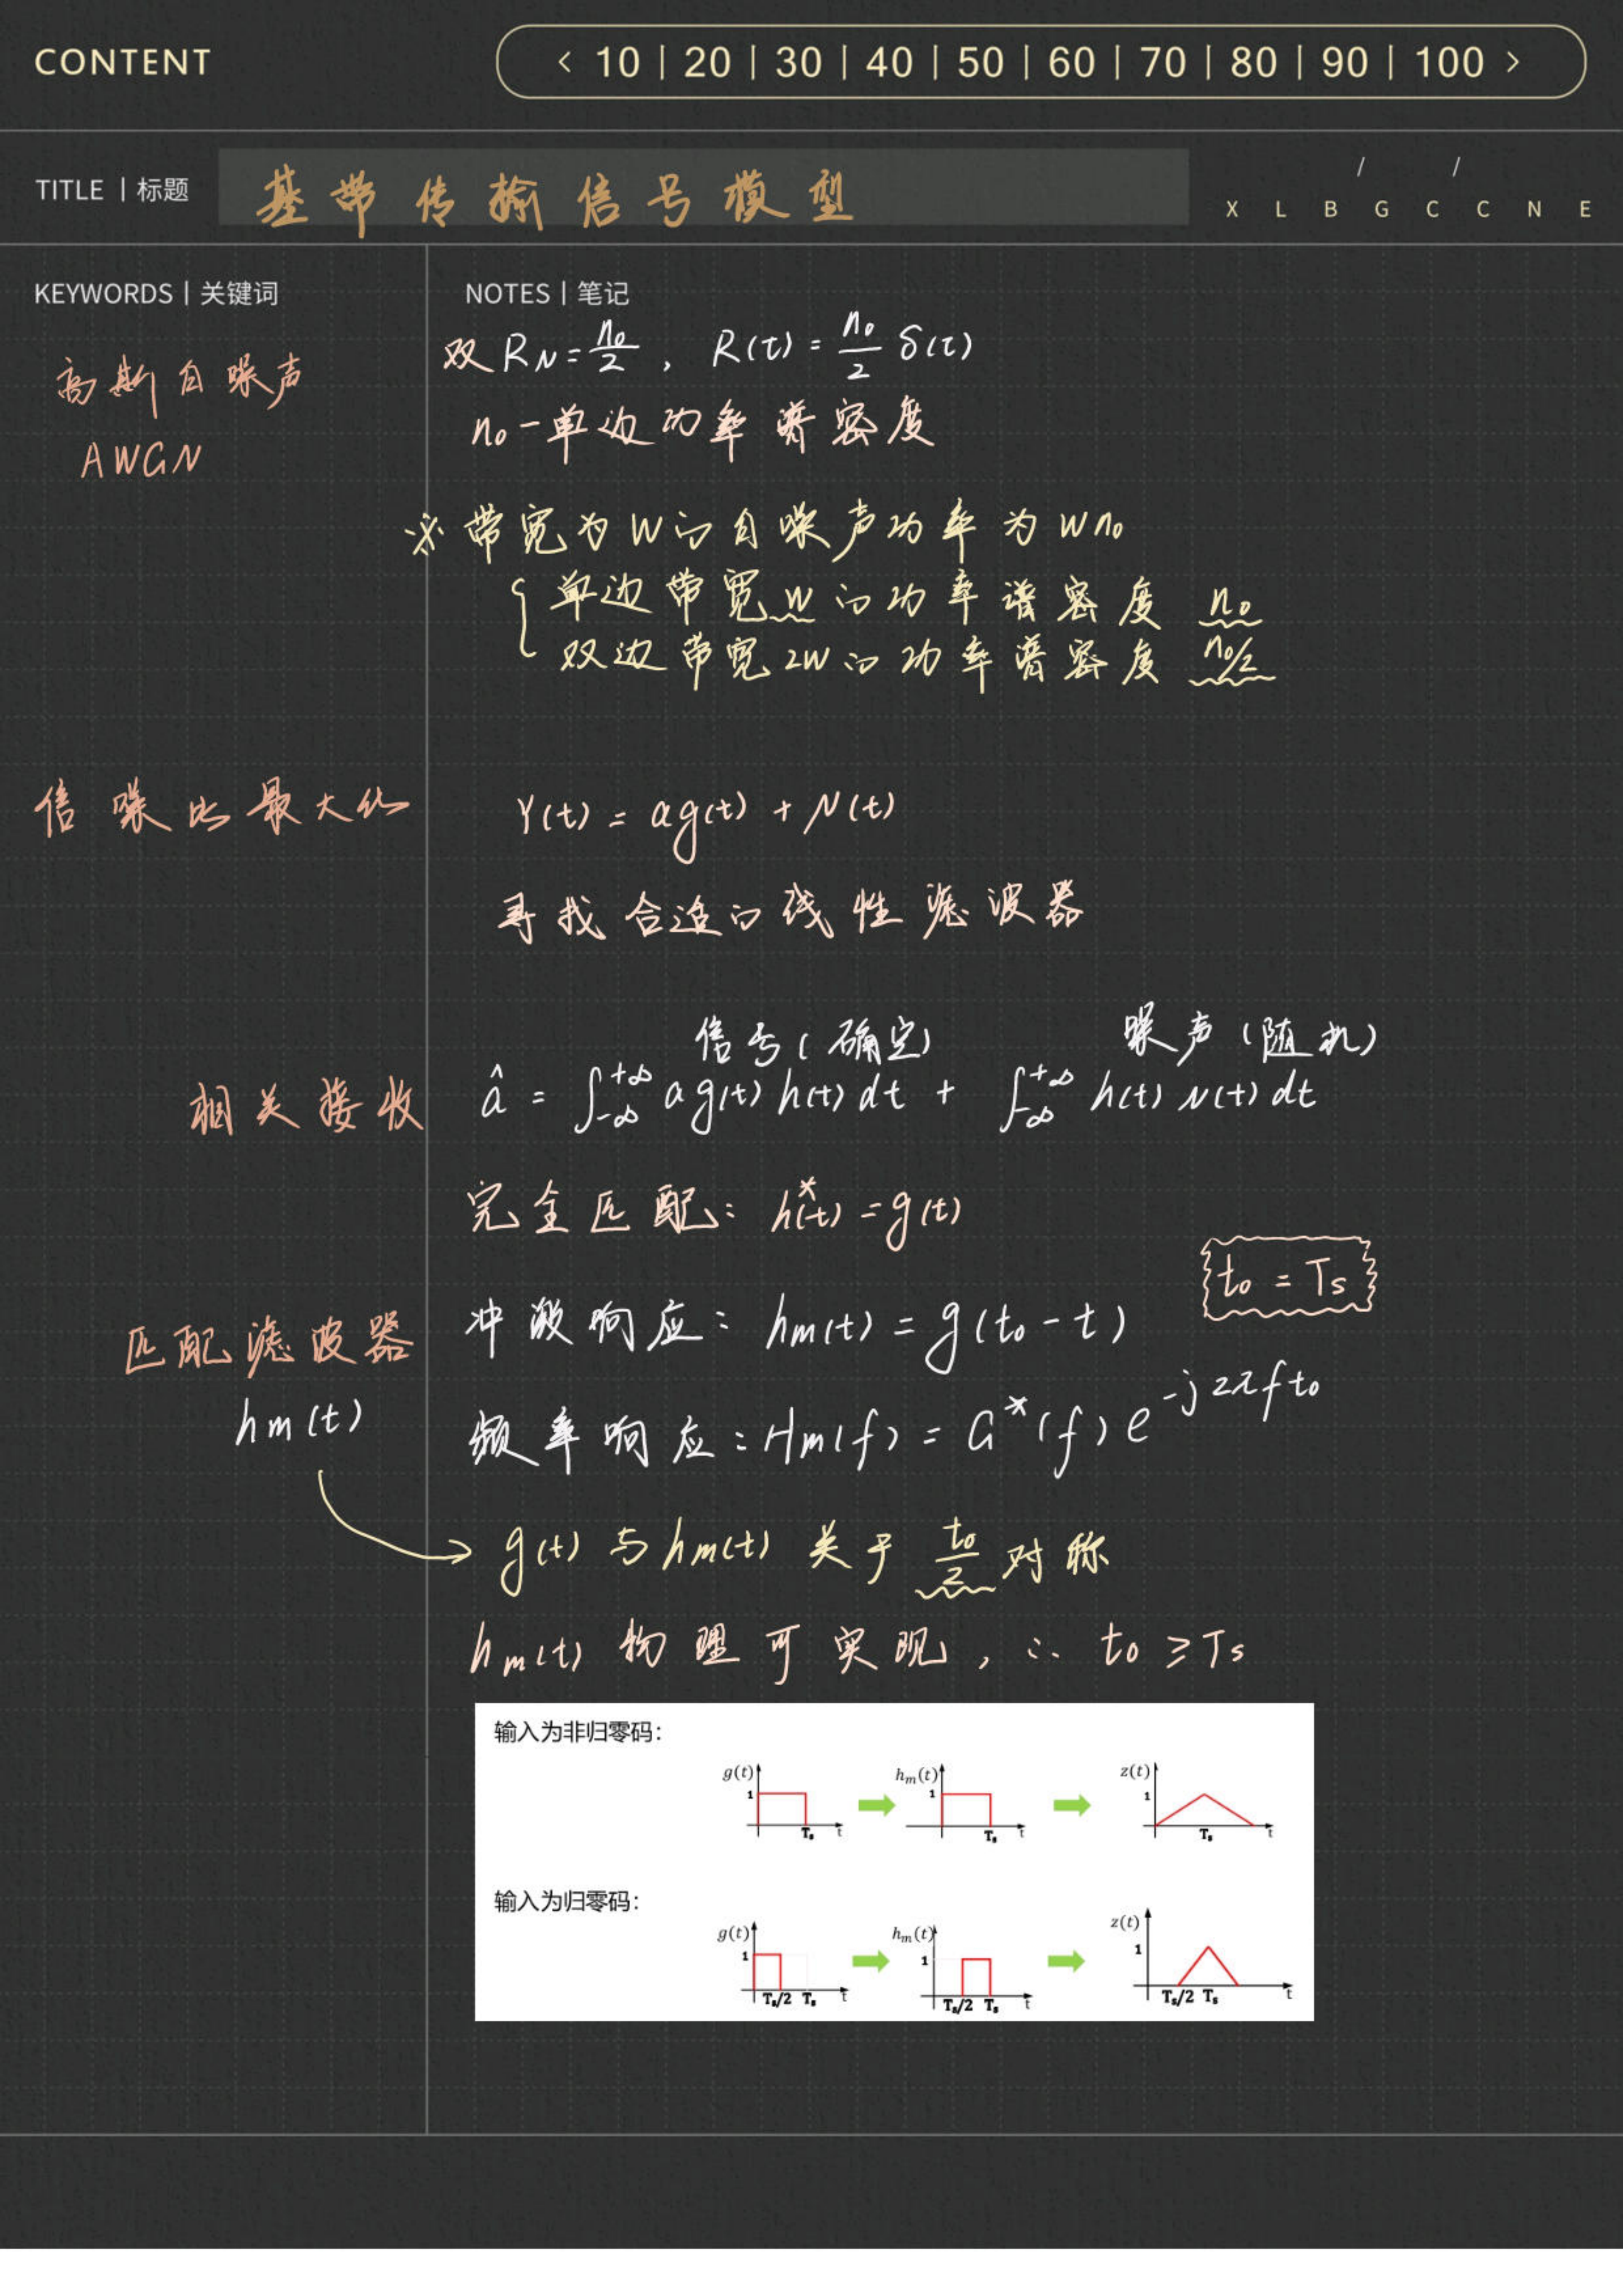 CONTENT
< 10 | 20 | 30 | 40 | 50 | 60 | 70 | 80 | 90 | 100 >
TITLE | 标题 基带传输信号模型
/ /
X L B G C C N E
KEYWORDS | 关键词
NOTES | 笔记
高斯白噪声
AWGN
双 R_N = n₀/2 , R(τ) = n₀/2 δ(τ)
n₀ - 单边功率谱密度
※ 带宽为 W 的白噪声功率为 W n₀
{ 单边带宽 W 的功率谱密度 n₀
双边带宽 2W 的功率谱密度 n₀/2
信噪比最大化
Y(t) = a g(t) + N(t)
寻找合适的线性滤波器
信号(确定) 噪声(随机)
相关接收
â = ∫_{-∞}^{+∞} a g(t) h(t) dt + ∫_{-∞}^{+∞} h(t) N(t) dt
完全匹配: h*(t) = g(t)
t₀ = Ts
匹配滤波器
hm(t)
冲激响应: hm(t) = g(t₀ - t)
频率响应: Hm(f) = G*(f) e^{-j2πft₀}
→ g(t) 与 hm(t) 关于 t₀/2 对称
hm(t) 物理可实现, ∴ t₀ ≥ Ts
输入为非归零码:
g(t) 1 Ts t
hm(t) 1 Ts t
z(t) 1 Ts t
输入为归零码:
g(t) 1 Ts/2 Ts t
hm(t) 1 Ts/2 Ts t
z(t) 1 Ts/2 Ts t